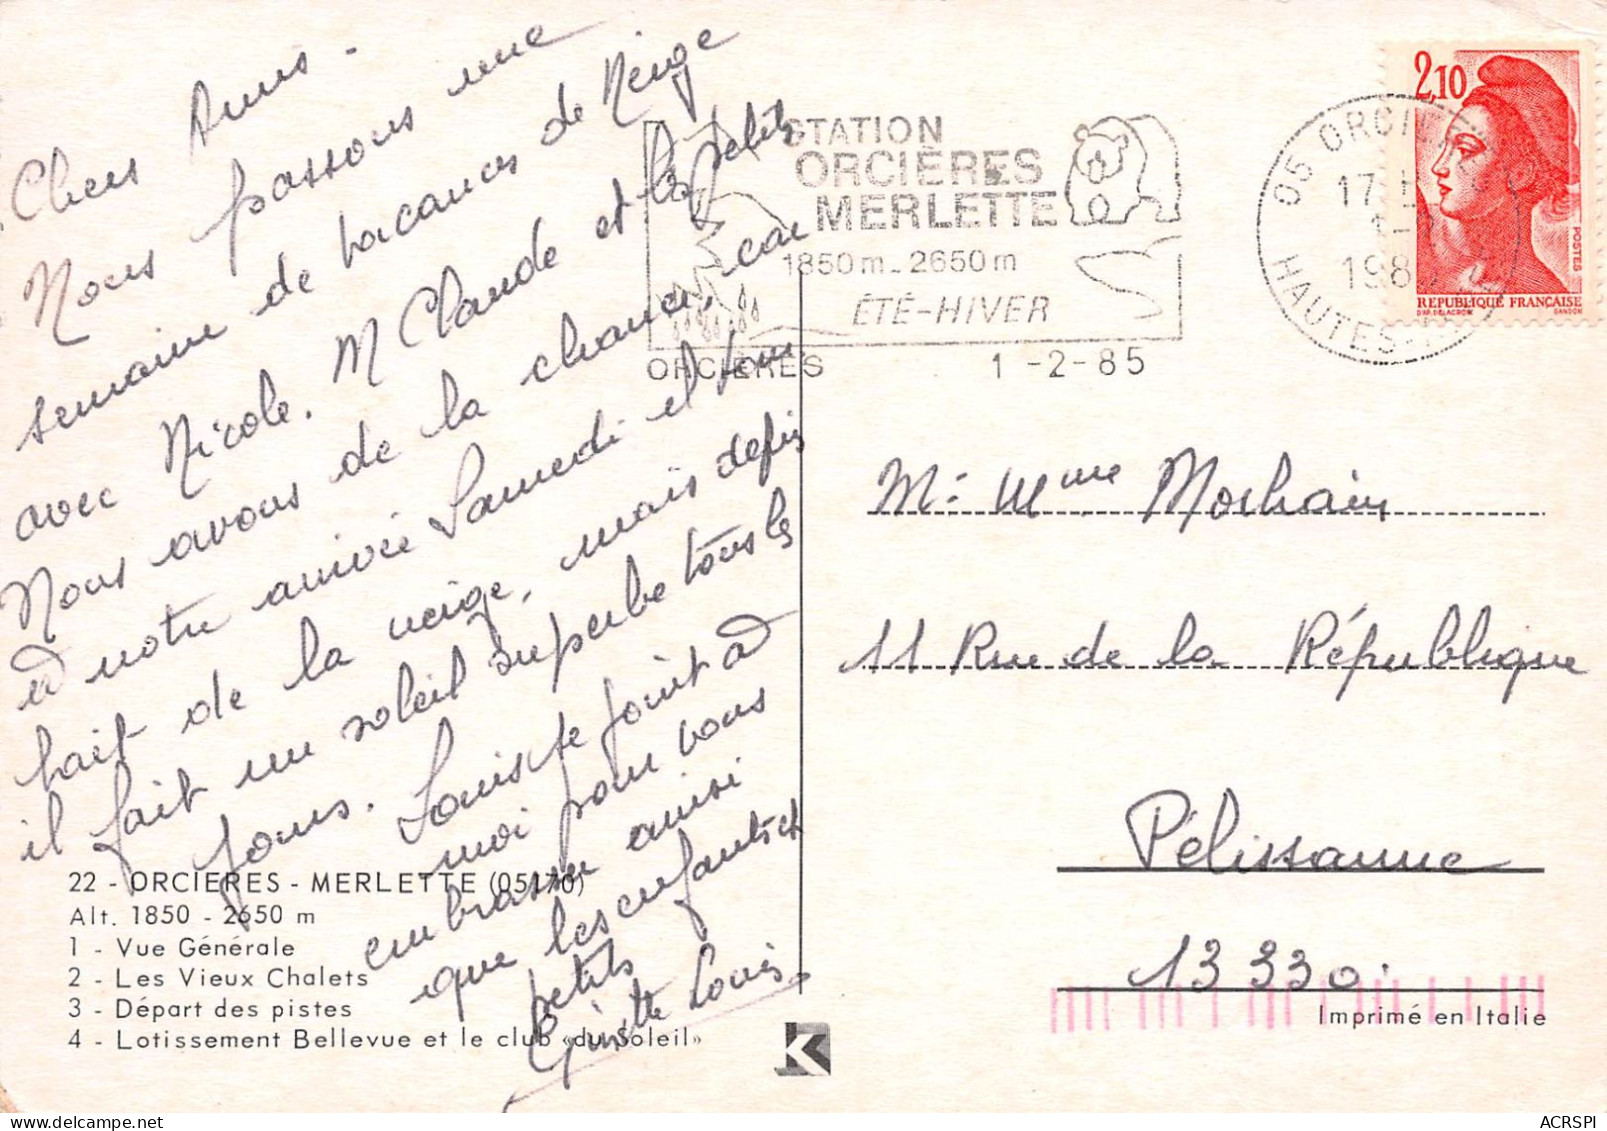 Chers Amis -
Nous passons une
semaine de vacances de Neige
avec Nicole. M Claude et les petits
Nous avons de la chance, car
à notre arrivée Samedi il
fait de la neige, mais depuis
il fait un soleil superbe tous les
jours. Louis se joint à
moi pour vous
embrasser ainsi
que les enfants et
petits
Ginette Louis
STATION
ORCIÈRES
MERLETTE
1850m_2650m
ÉTÉ-HIVER
ORCIERES 1 -2-85
05 ORCIÈRES
17 H
1-
198
HAUTES-
2,10
POSTES
REPUBLIQUE FRANÇAISE
D'AP. DELACROIX GANDON
M: Mme Morhain
11 Rue de la République
Pélissanne
13 330
22 - ORCIERES - MERLETTE (05170)
Alt. 1850 - 2650 m
1 - Vue Générale
2 - Les Vieux Chalets
3 - Départ des pistes
4 - Lotissement Bellevue et le club «du Soleil»
K
Imprimé en Italie
ACRSPI